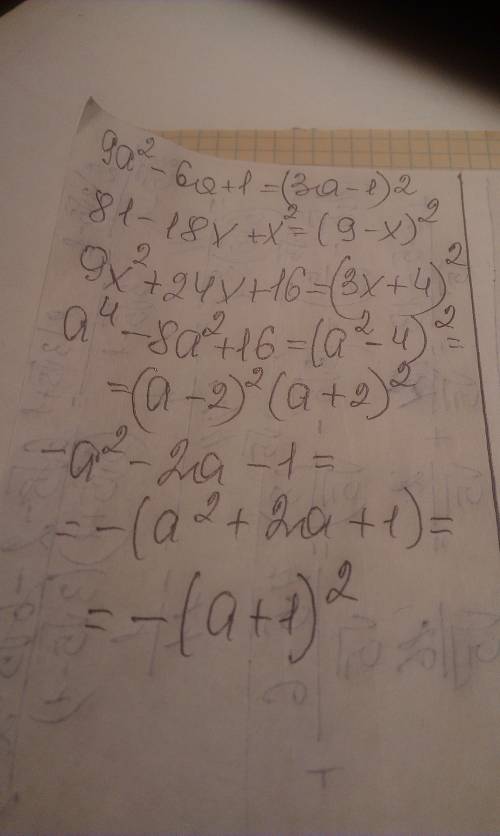 9a² - 6a + 1 = (3a - 1)2
81 - 18x + x² = (9 - x)²
9x² + 24x + 16 = (3x + 4)²
a⁴ - 8a² + 16 = (a² - 4)² =
= (a - 2)² (a + 2)²
-a² - 2a - 1 =
= -(a² + 2a + 1) =
= -(a + 1)²